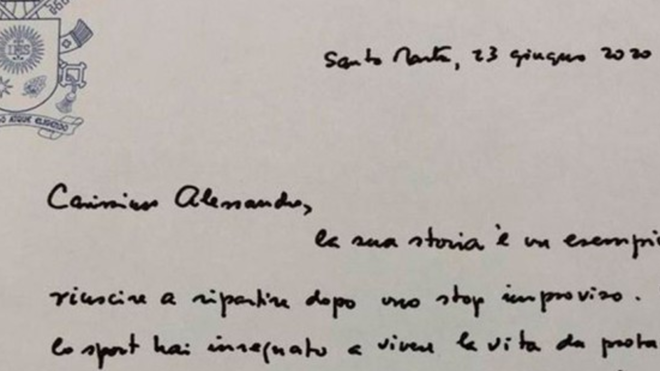 IHS
ATQUE ELIGENDO
Santa Marta, 23 giugno 2020
Carissimo Alessandro,
la sua storia è un esempi
riuscire a ripartire dopo uno stop improvviso.
lo sport hai insegnato a vivere la vita da prota